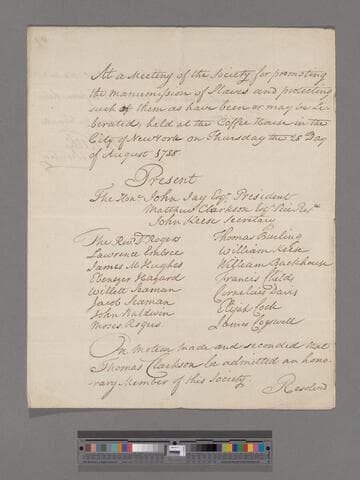 At a Meeting of the Society for promoting
the Manumission of Slaves and protecting
such of them as have been or may be Li-
berated, held at the Coffee House in the
City of New York on Thursday the 28 Day
of August 1788
Present
The Honl. John Jay Esqr. President
Matthew Clarkson Esqr. Vice Prest.
John Keese Secretary
The Revd. Dr. Rogers
Lawrence Embree
James M Hughes
Ebenezer Hazard
Willett Seaman
Jacob Seaman
John Baldwin
Moses Rogers
Thomas Burling
William Keese
William Backhouse
Francis Childs
Cornelius Davis
Elijah Cock
James Cogswell
On motion made and seconded that
Thomas Clarkson be admitted an hono-
rary Member of this Society.
Resolved